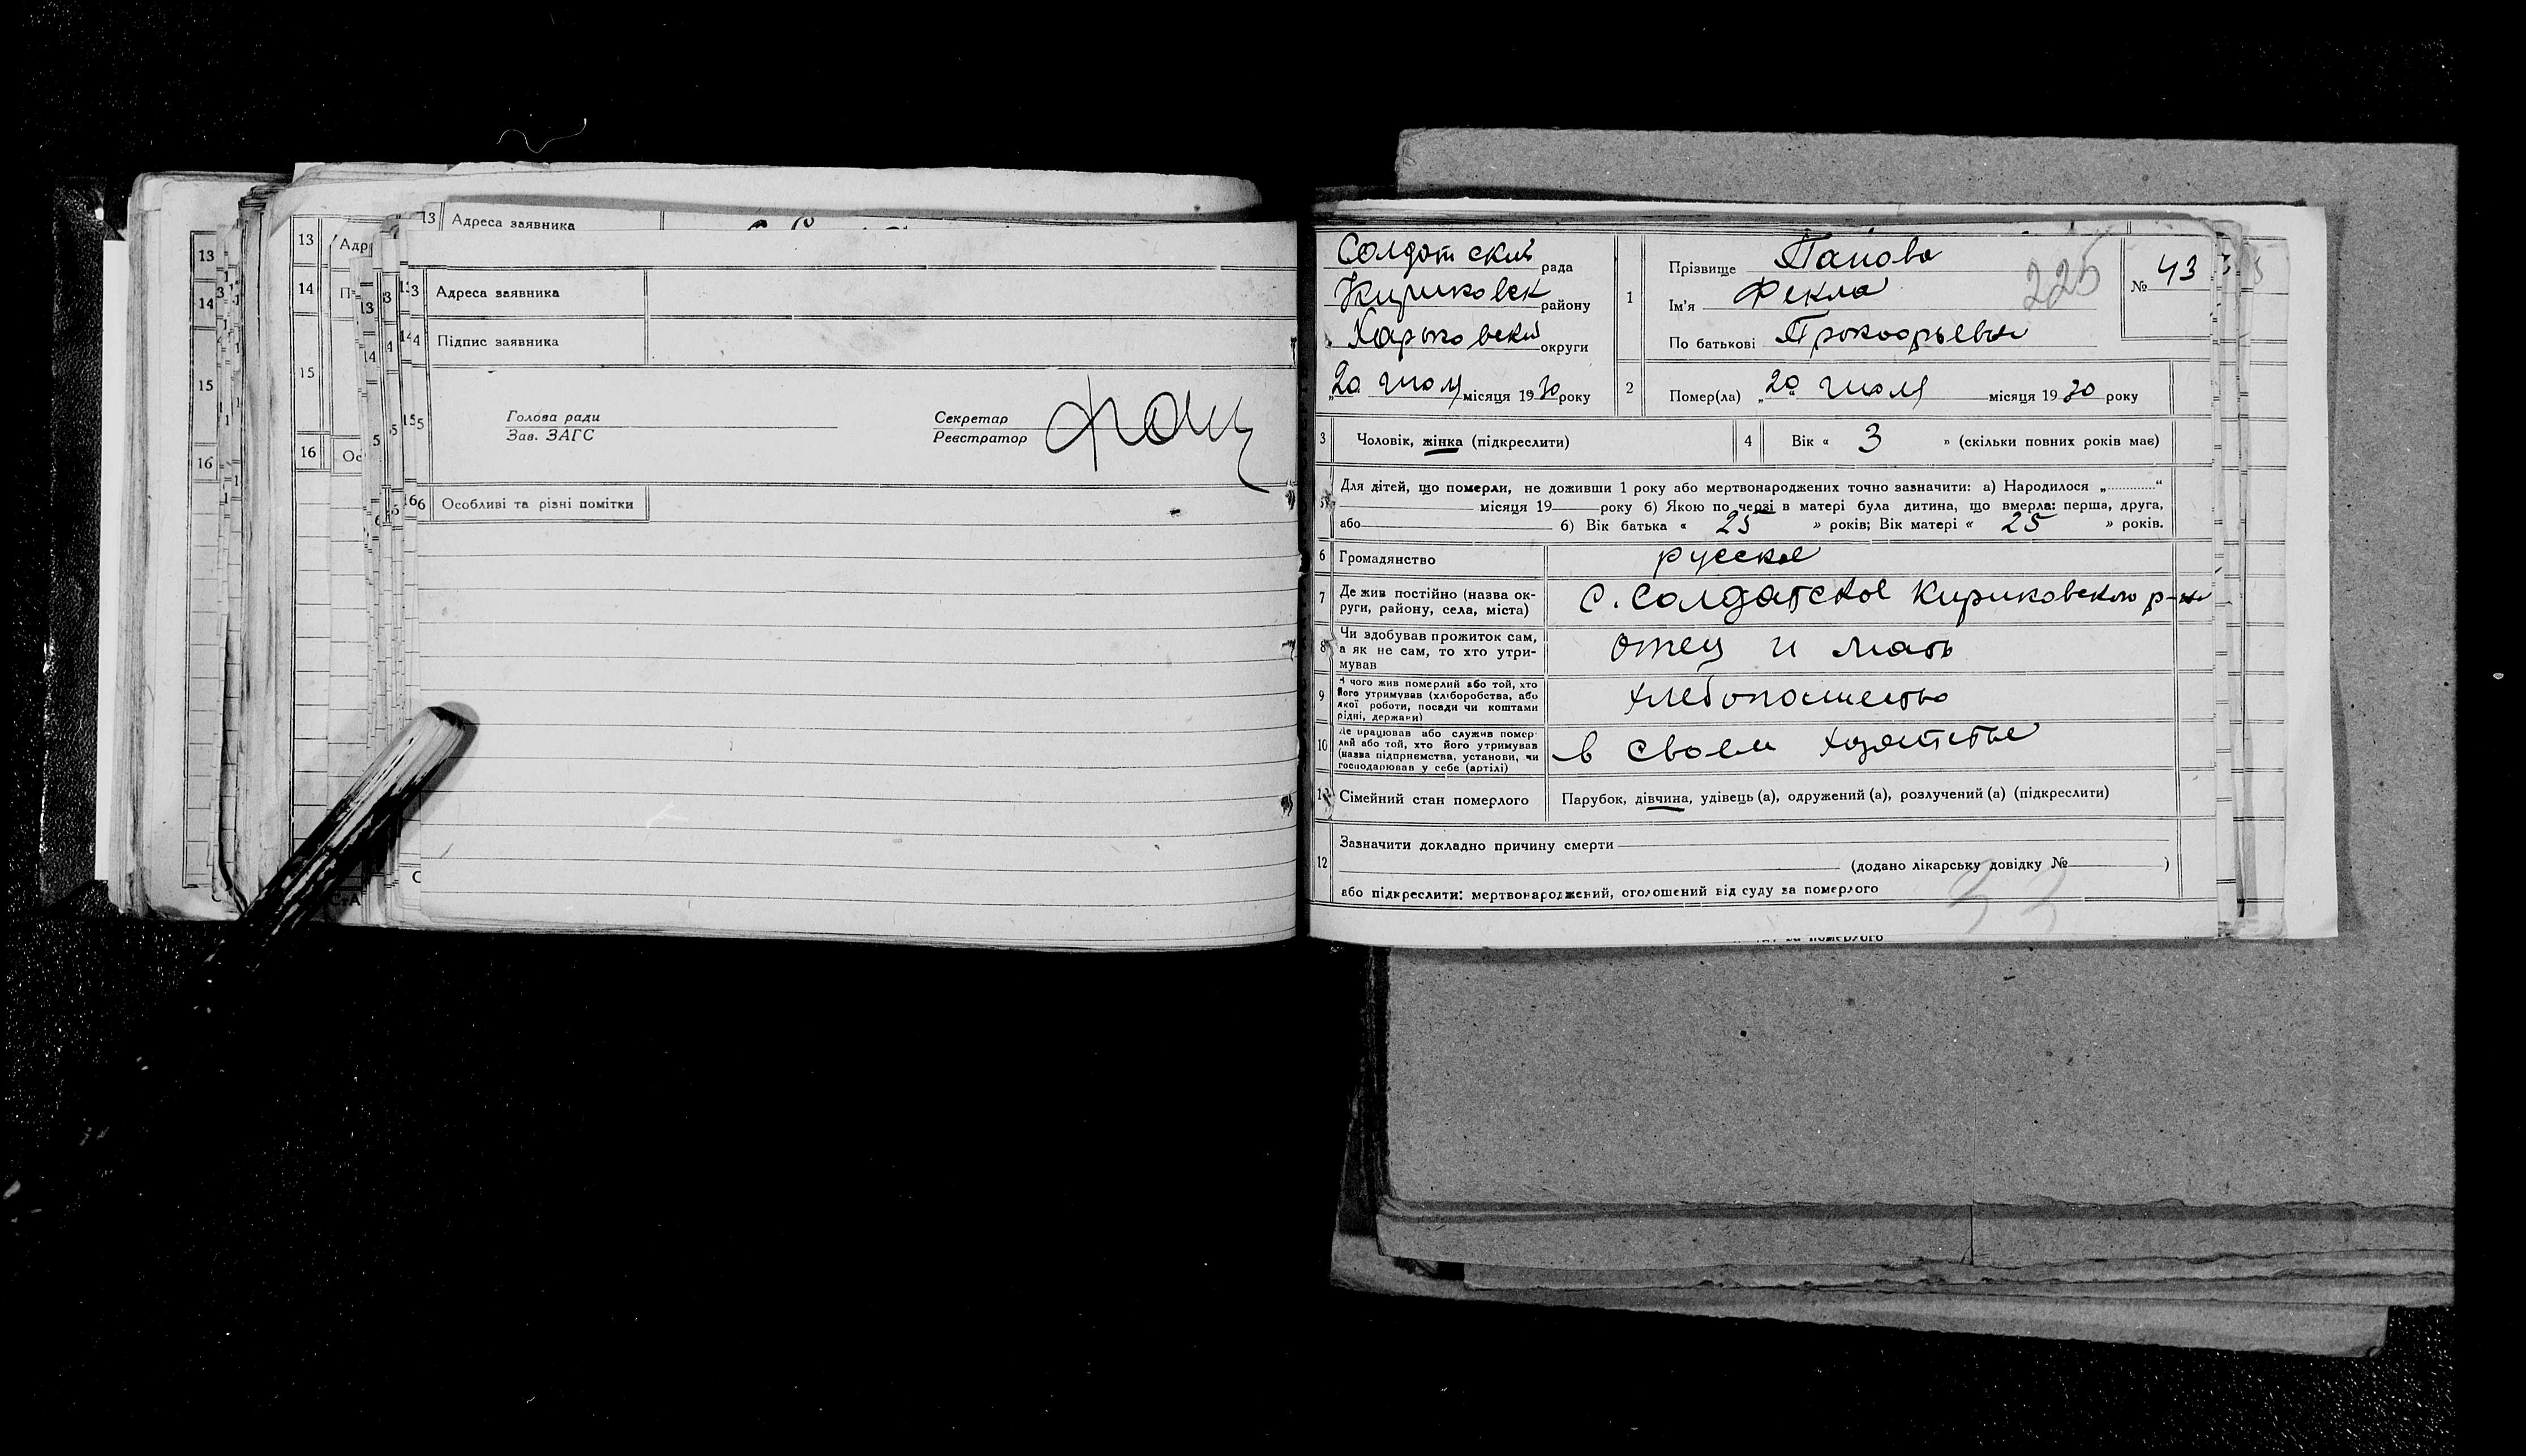 13 Адреса заявника
13 Адреса заявника
14 Підпис заявника
15
Голова ради
Зав. ЗАГС
Секретар
Реєстратор
16 Особливі та різні помітки
13
14
15
16
13 Адр
14
15
16 Ос
Солдатский рада
Кириковск району
Харьковский округи
„20 июля місяця 1930 року
1
Прізвище Папова
Ім'я Фекла
По батькові
225
№ 43
2 Помер(ла) „20" июля місяця 1930 року
3 Чоловік, жінка (підкреслити)
4 Вік « 3 » (скільки повних років має)
5 Для дітей, що померли, не доживши 1 року або мертвонароджених точно зазначити: а) Народилося „............"
місяця 19 року б) Якою по черзі в матері була дитина, що вмерла: перша, друга,
або 6) Вік батька « 25 » років; Вік матері « 25 » років.
6 Громадянство русская
7 Де жив постійно (назва ок-
руги, району, села, міста)
С. Солдатское Кириковского р-на
8 Чи здобував прожиток сам,
а як не сам, то хто утри-
мував
отец и мать
9 З чого жив померлий або той, хто
його утримував (хліборобства, або
якої роботи, посади чи коштами
рідні, держави)
хлебопашество
10 Де працював або служив помер-
лий або той, хто його утримував
(назва підприємства, установи, чи
господарював у себе (артілі)
в своем хозяйстве
11 Сімейний стан померлого
Парубок, дівчина, удівець (а), одружений (а), розлучений (а) (підкреслити)
12 Зазначити докладно причину смерти
(додано лікарську довідку № )
або підкреслити: мертвонароджений, оголошений від суду за померлого
за померлого